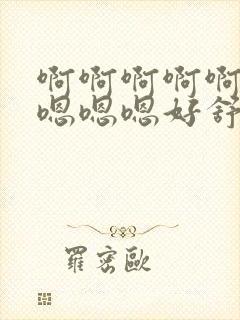 啊啊啊啊啊
嗯嗯嗯好舒
羅密歐